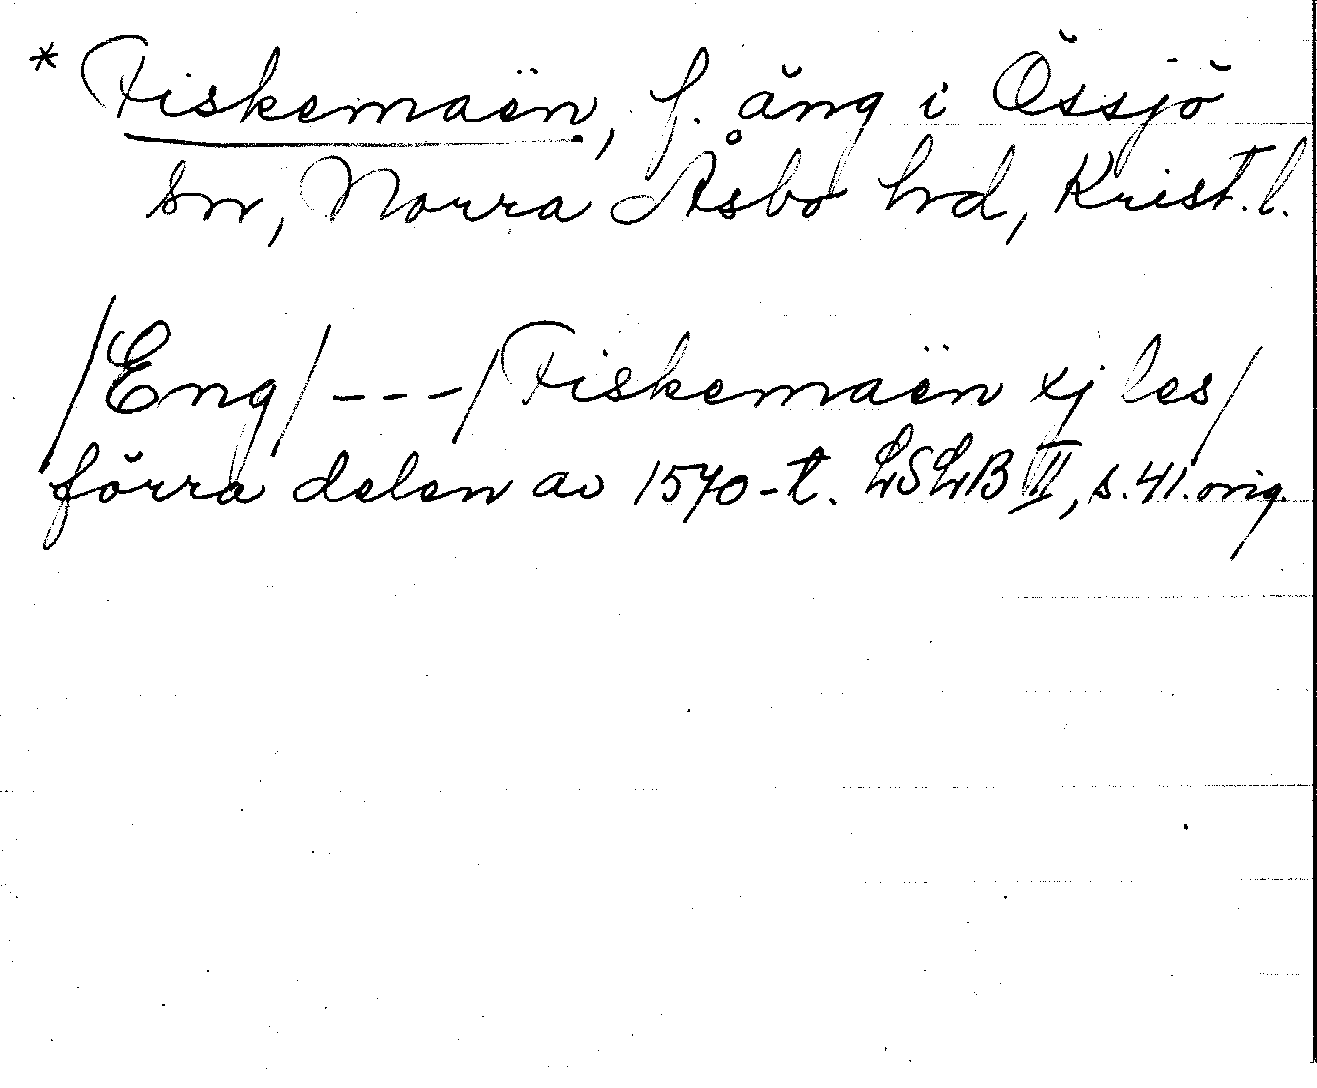 * Fiskemaën, f. äng i Össjö
sn, Norra Åsbo hd, Krist. l.
/Eng/ --- /Fiskemaën xj les/
förra delen av 1570-t. LSLB II, s. 41. orig.